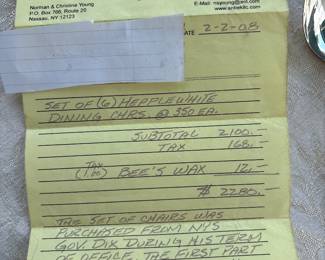 Norman & Christine Young
P.O. Box 766, Route 20
Nassau, NY 12123
E-Mail: nsyoung@ant
www.antiekllc.com
ATE 2-2-08
SET OF (6) HEPPLEWHITE
DINING CHRS. @ 350 EA.
SUBTOTAL 2100.—
TAX 168.—
(1 BEE'S WAX 12.—
$ 2280.—
THE SET OF CHAIRS WAS
PURCHASED FROM NYS
GOV. DIX DURING HIS TERM
OF OFFICE, THE FIRST PART